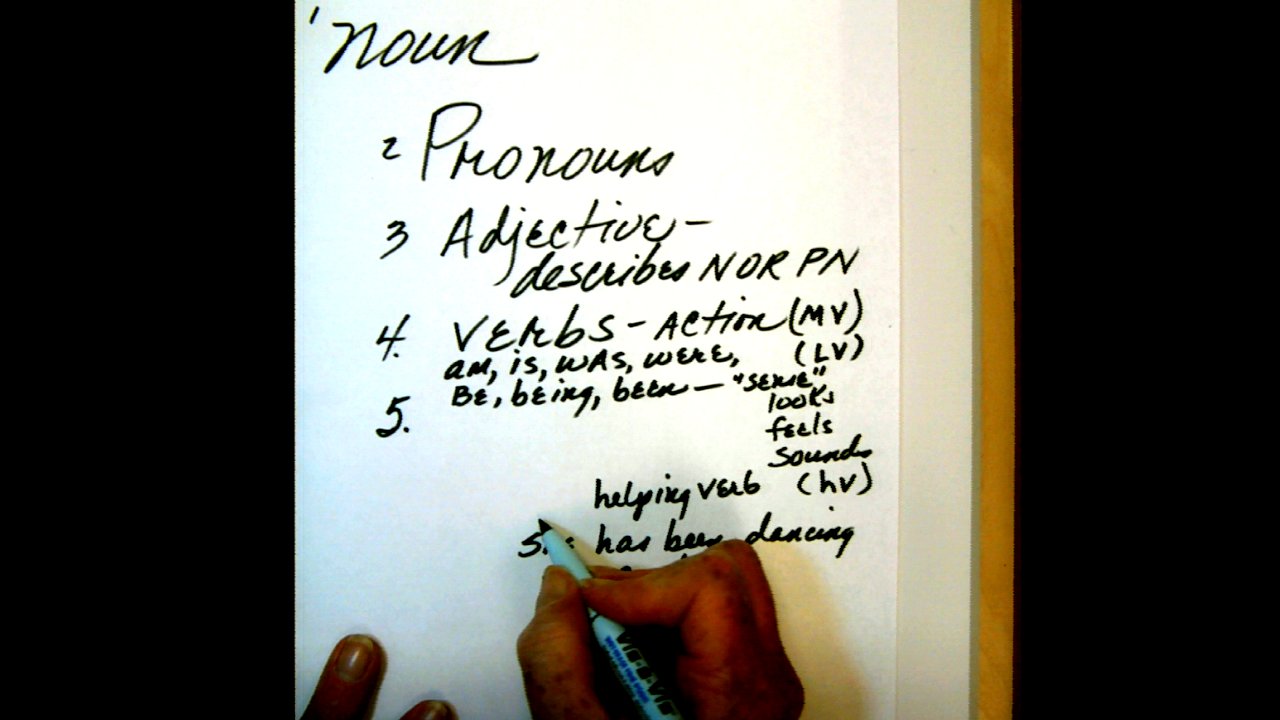 1 noun
2 Pronouns
3 Adjective -
describes N OR PN
4. VERBS - Action (MV)
am, is, was, were, (LV)
Be, being, been - "sense"
looks
5.
feels
sounds
helping verb (hv)
has been dancing